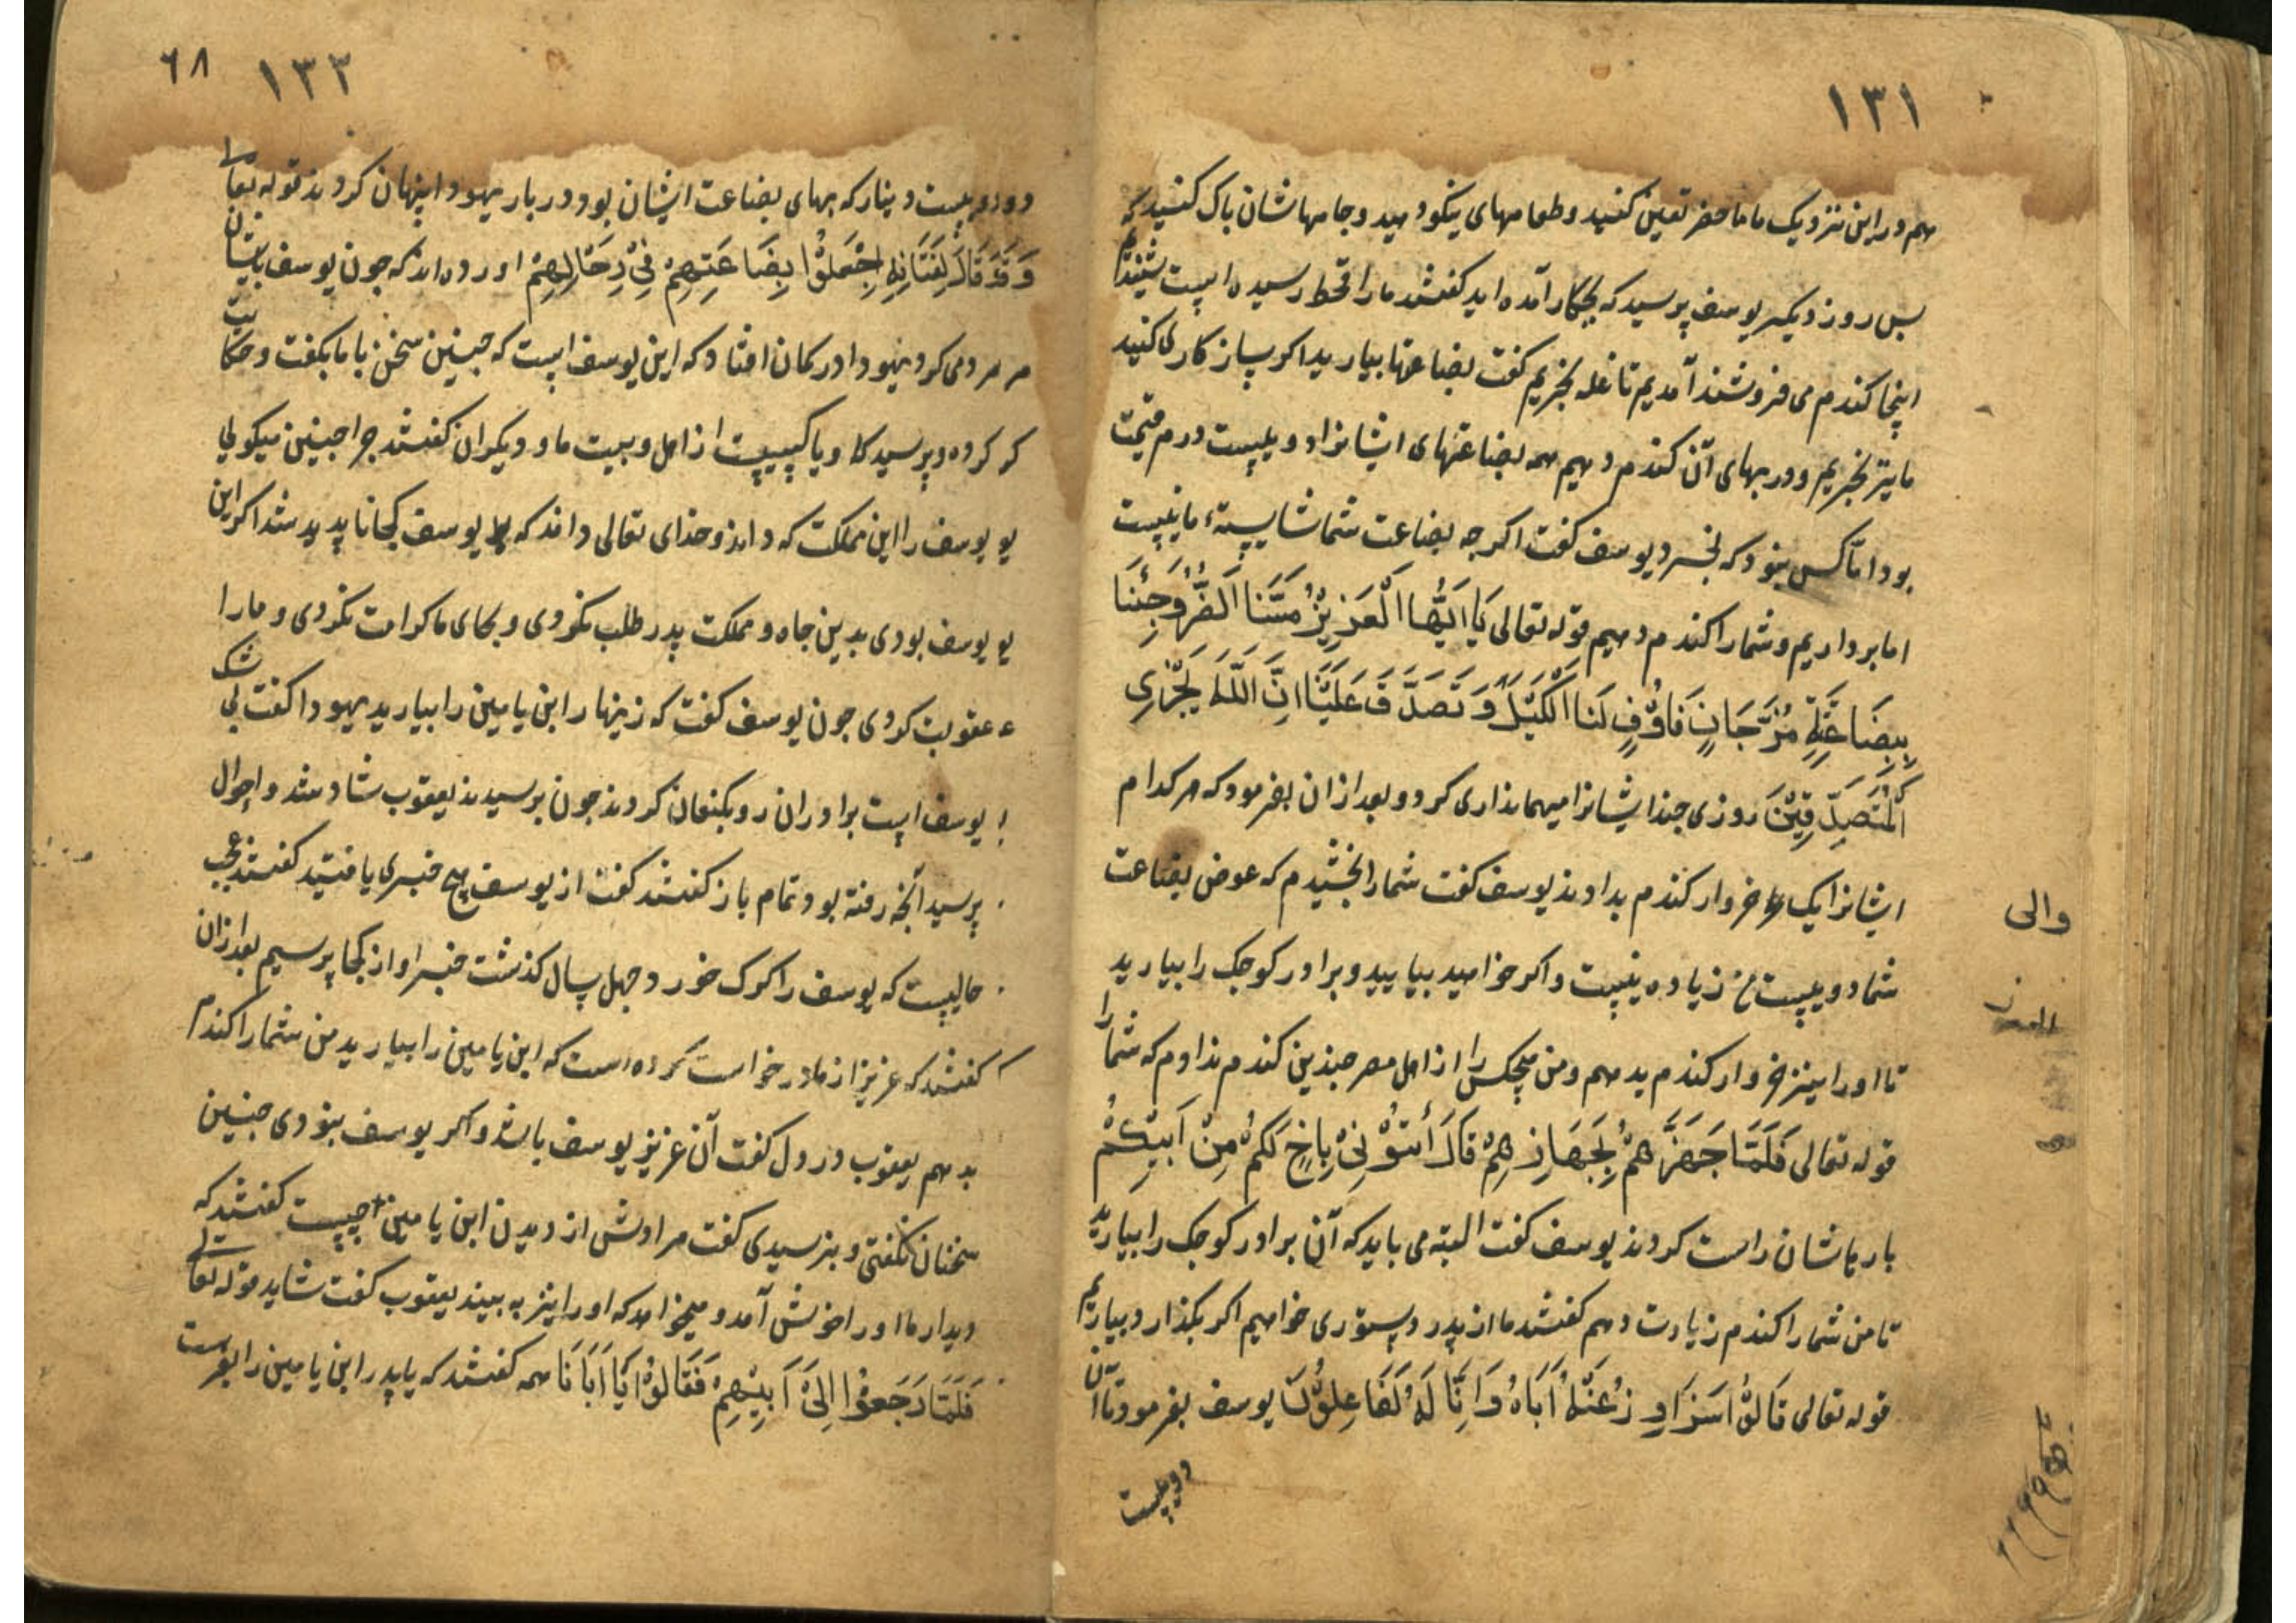 ١٣١
هم در این نزدیک ما ماحضر تعیین کنید و طعامهای نیکو دهید و جامهاشان پاک کنید که
پس روز دیگر یوسف پرسید که بچکار آمده اید کفتند ما را قحط رسیده است شنیدیم
اینجا کندم می فروشند آمدیم تا غله بخریم کفت بضاعتها بیارید اکر ساز کاری کنید
ما نیز بخریم و در بهای آن کندم دهیم همه بضاعتهای ایشانرا دویست درم قیمت
بود اما کس نبود که بخرد یوسف کفت اکرچه بضاعت شما شایسته ما نیست
اما برداریم و شما را کندم دهیم قوله تعالی یَا اَیُّهَا الْعَزِیزُ مَسَّنَا الضُّرُّ وَجِئْنَا
بِبِضَاعَةٍ مُزْجَاةٍ فَاَوْفِ لَنَا الْکَیْلَ وَ تَصَدَّقْ عَلَیْنَا اِنَّ اللَّهَ یَجْزِی
الْمُتَصَدِّقِیْنَ روزی چند ایشانرا میهمانداری کرد و بعد از ان بفرمود که هر کدام
ایشانرا یک خروار کندم بدادند یوسف کفت شما را بخشیدم که عوض بضاعت
شما دویست من زیاده نیست و اکر خواهید بیایید و برادر کوچک را بیارید
تا او را نیز خروار کندم بدهم و من هیچکس را از اهل مصر چندین کندم ندادم که شما را
قوله تعالی فَلَمَّا جَهَّزَهُمْ بِجَهَازِهِمْ قَالَ أْتُوْنِیْ بِاَخٍ لَکُمْ مِنْ اَبِیْکُمْ
بارهاشان راست کردند یوسف کفت البته می باید که آن برادر کوچک را بیارید
تا من شما را کندم زیادت دهم کفتند ما از پدر دستوری خواهیم اکر بکذارد بیاریم
قوله تعالی قَالُوْا سَنُرَاوِدُ عَنْهُ اَبَاهُ وَاِنَّا لَفَاعِلُوْنَ یوسف بفرمود تا آن
دویست
والی
١٣٢ ٦٨
دویست دینار که بهای بضاعت ایشان بود در بار یهودا پنهان کردند قوله تعالی
وَ قَالَ لِفِتْیَانِهِ اجْعَلُوْا بِضَاعَتِهِمْ فِیْ رِحَالِهِمْ اورده اند که چون یوسف باایشان
مردمی کرد یهودا در کمان افتاد که این یوسف است که چنین سخن با ما بکفت و حکایت
که کرده و پرسید کا و یا کیست از اهل و بیت ما و دیکران کفتند چرا چنین میکوئی
یوسف را این مملکت که داند و خدای تعالی داند که یوسف کجا ناپدید شد اکر این
یوسف بودی بدین جاه و مملکت پدر طلب نکردی و بجای ما کرامت نکردی و ما را
عقوبت کردی چون یوسف کفت که زینهار ابن یامین را بیارید یهودا کفت بی شک
یوسف است برادران رو بکنعان کردند چون برسیدند یعقوب شاد شد و احوال
پرسید آنچه رفته بود تمام باز کفتند کفت از یوسف هیچ خبری یافتید کفتند عجب
حالیست که یوسف را کرک خورد و چهل سال کذشت خبر او از کجا پرسیم بعد از ان
کفتند که عزیز از ما درخواست کرده است که ابن یامین را بیارید من شما را کندم
بدهم یعقوب در دل کفت آن عزیز یوسف باشد و اکر یوسف نبودی چنین
سخنان نکفتی و نپرسیدی کفت مرادش از دیدن ابن یامین چیست کفتند که
دیدار ما او را خوش آمد و میخواهد که او را نیز به بیند یعقوب کفت شاید قوله تعالی
فَلَمَّا رَجَعُوْا اِلیٰ اَبِیْهِمْ فَقَالُوْا یَا اَبَانَا همه کفتند که یا پدر ابن یامین را بفرست